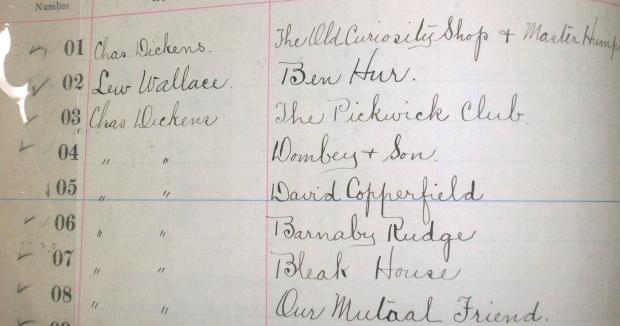 Number
01 Chas. Dickens. The Old Curiosity Shop + Master Hump
02 Lew Wallace. Ben Hur.
03 Chas Dickens The Pickwick Club.
04 " " Dombey + Son.
05 " " David Copperfield
06 " " Barnaby Rudge
07 " " Bleak House
08 " " Our Mutual Friend.